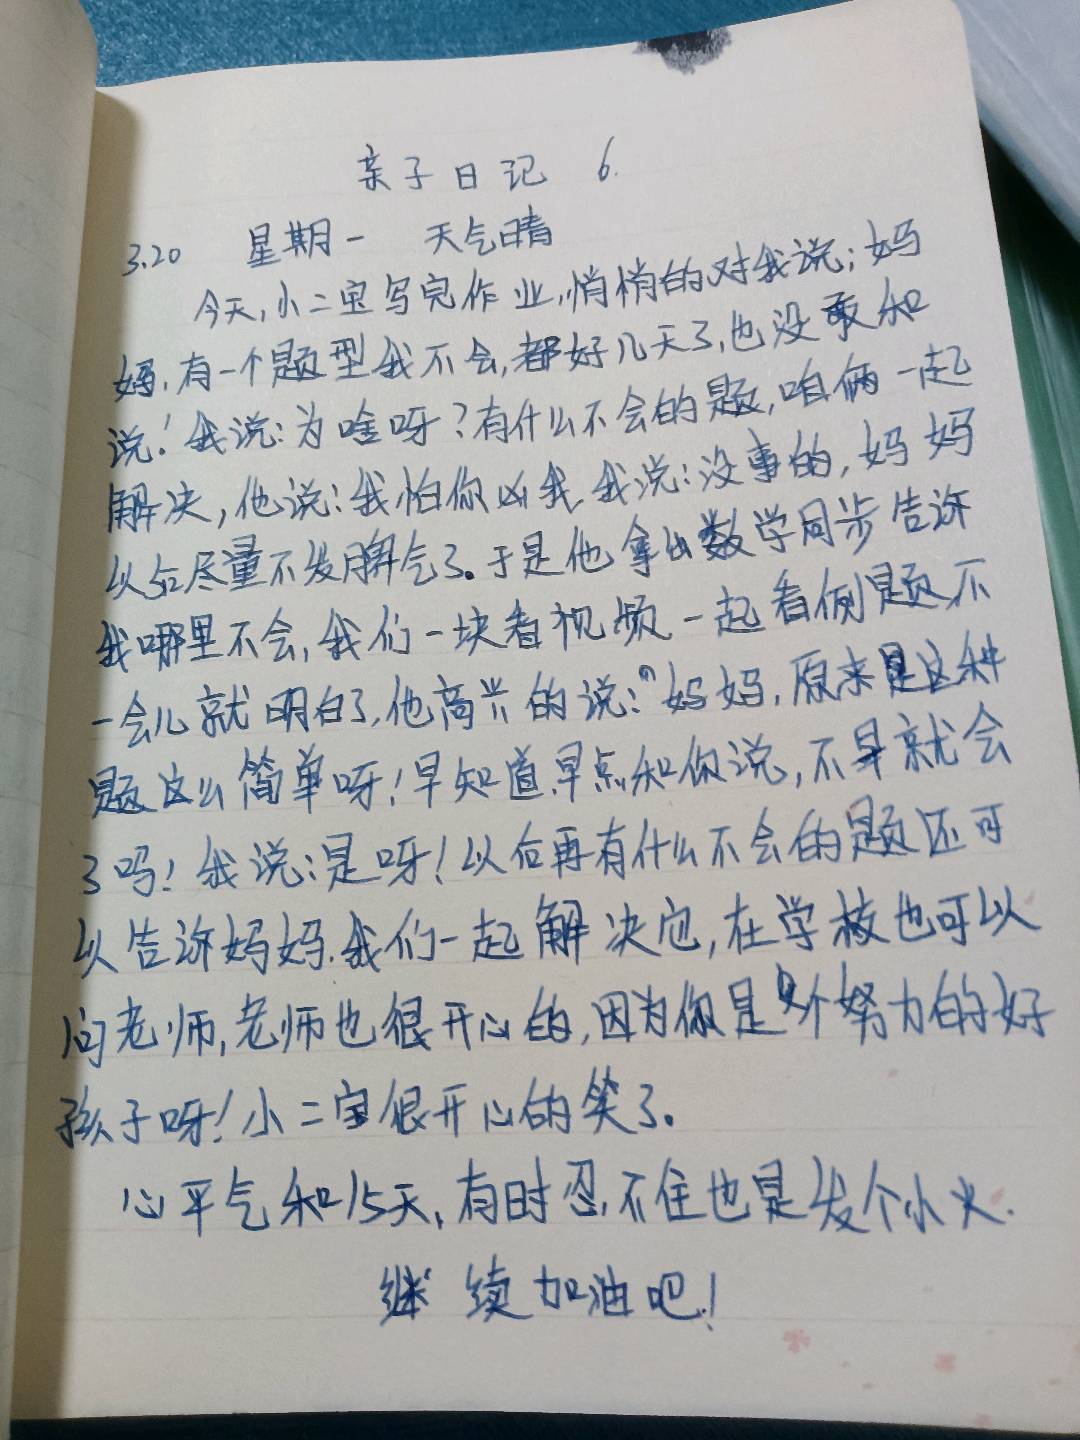 亲子日记 6.
3.20 星期一 天气晴
今天,小二宝写完作业,悄悄的对我说;妈
妈,有一个题型我不会,都好几天了,也没敢和
说!我说:为啥呀?有什么不会的题,咱俩一起
解决,他说:我怕你凶我,我说:没事的,妈妈
以后尽量不发脾气了。于是他拿出数学同步告诉
我哪里不会,我们一块看视频一起看例题不
一会儿就明白了,他高兴的说:"妈妈,原来是这种
题这么简单呀!早知道,早点和你说,不早就会
了吗!我说:是呀!以后再有什么不会的题还可
以告诉妈妈.我们一起解决它,在学校也可以
问老师,老师也很开心的,因为你是个努力的好
孩子呀!小二宝很开心的笑了。
心平气和15天,有时忍不住也是发个小火.
继续加油吧!